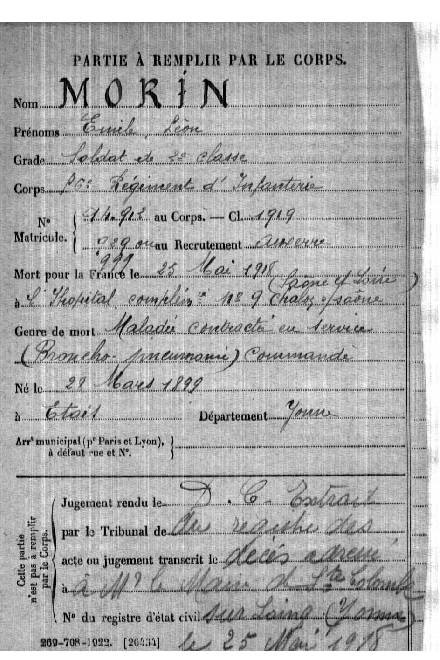 PARTIE À REMPLIR PAR LE CORPS.
Nom MORIN
Prénoms Emile, Léon
Grade Soldat de 2e classe
Corps Régiment d'Infanterie
Nº Matricule. 14.912 au Corps. — Cl. 1919
929 ou 999 au Recrutement Auxerre
Mort pour la France le 25 Mai 1918
à l'Hopital complém. nº 9 Chalon s/ Saône (Saône et Loire)
Genre de mort Maladie contractée en service
(Broncho-pneumonie) Commandé
Né le 28 Mars 1899
à Etais Département Yonne
Arrᵗ municipal (pʳ Paris et Lyon), à défaut rue et Nº.
Cette partie n'est pas à remplir par le Corps.
Jugement rendu le D. C. Extrait
par le Tribunal de du registre des
acte ou jugement transcrit le décès adressé
à à Mr le Maire de Ste Colombe
Nº du registre d'état civil sur Loing (Yonne)
269-708-1922. [26434] le 25 Mai 1918